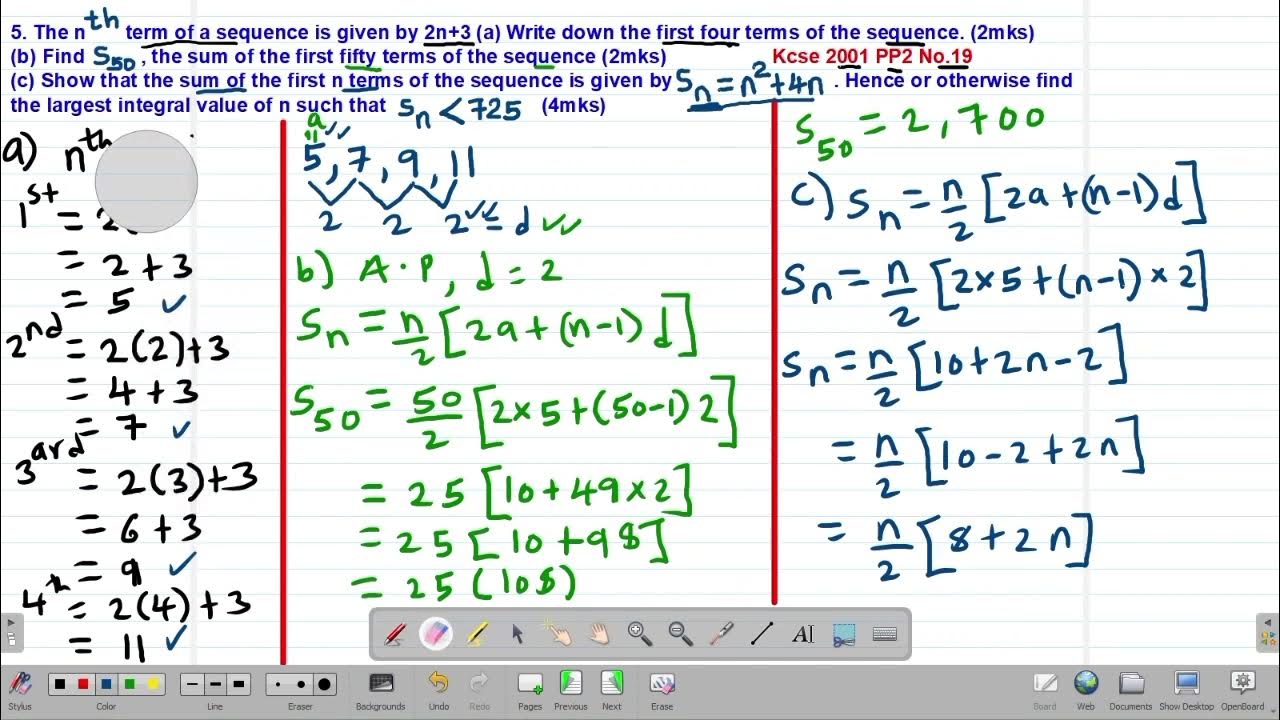 5. The n th term of a sequence is given by 2n+3 (a) Write down the first four terms of the sequence. (2mks)
(b) Find S50, the sum of the first fifty terms of the sequence (2mks) Kcse 2001 PP2 No.19
(c) Show that the sum of the first n terms of the sequence is given by Sn = n²+4n . Hence or otherwise find
the largest integral value of n such that Sn < 725 (4mks)
a) nth
1st = 2(
= 2 + 3
= 5 ✓
2nd = 2(2)+3
= 4 + 3
= 7 ✓
3ard = 2(3)+3
= 6 + 3
= 9 ✓
4th = 2(4)+3
= 11 ✓
a
"
5, 7, 9, 11
2 2 2 = d ✓✓
b) A.P, d = 2
Sn = n/2 [2a + (n-1)d]
S50 = 50/2 [2×5+(50-1)2]
= 25 [10+49×2]
= 25 [10 +98]
= 25 (108)
S50 = 2,700
c) Sn = n/2 [2a + (n-1)d]
Sn = n/2 [2×5+(n-1)×2]
Sn = n/2 [10+2n-2]
= n/2 [10-2+2n]
= n/2 [8+2n]
Stylus Color Line Eraser Backgrounds Undo Redo Pages Previous Next Erase Board Web Documents Show Desktop OpenBoard